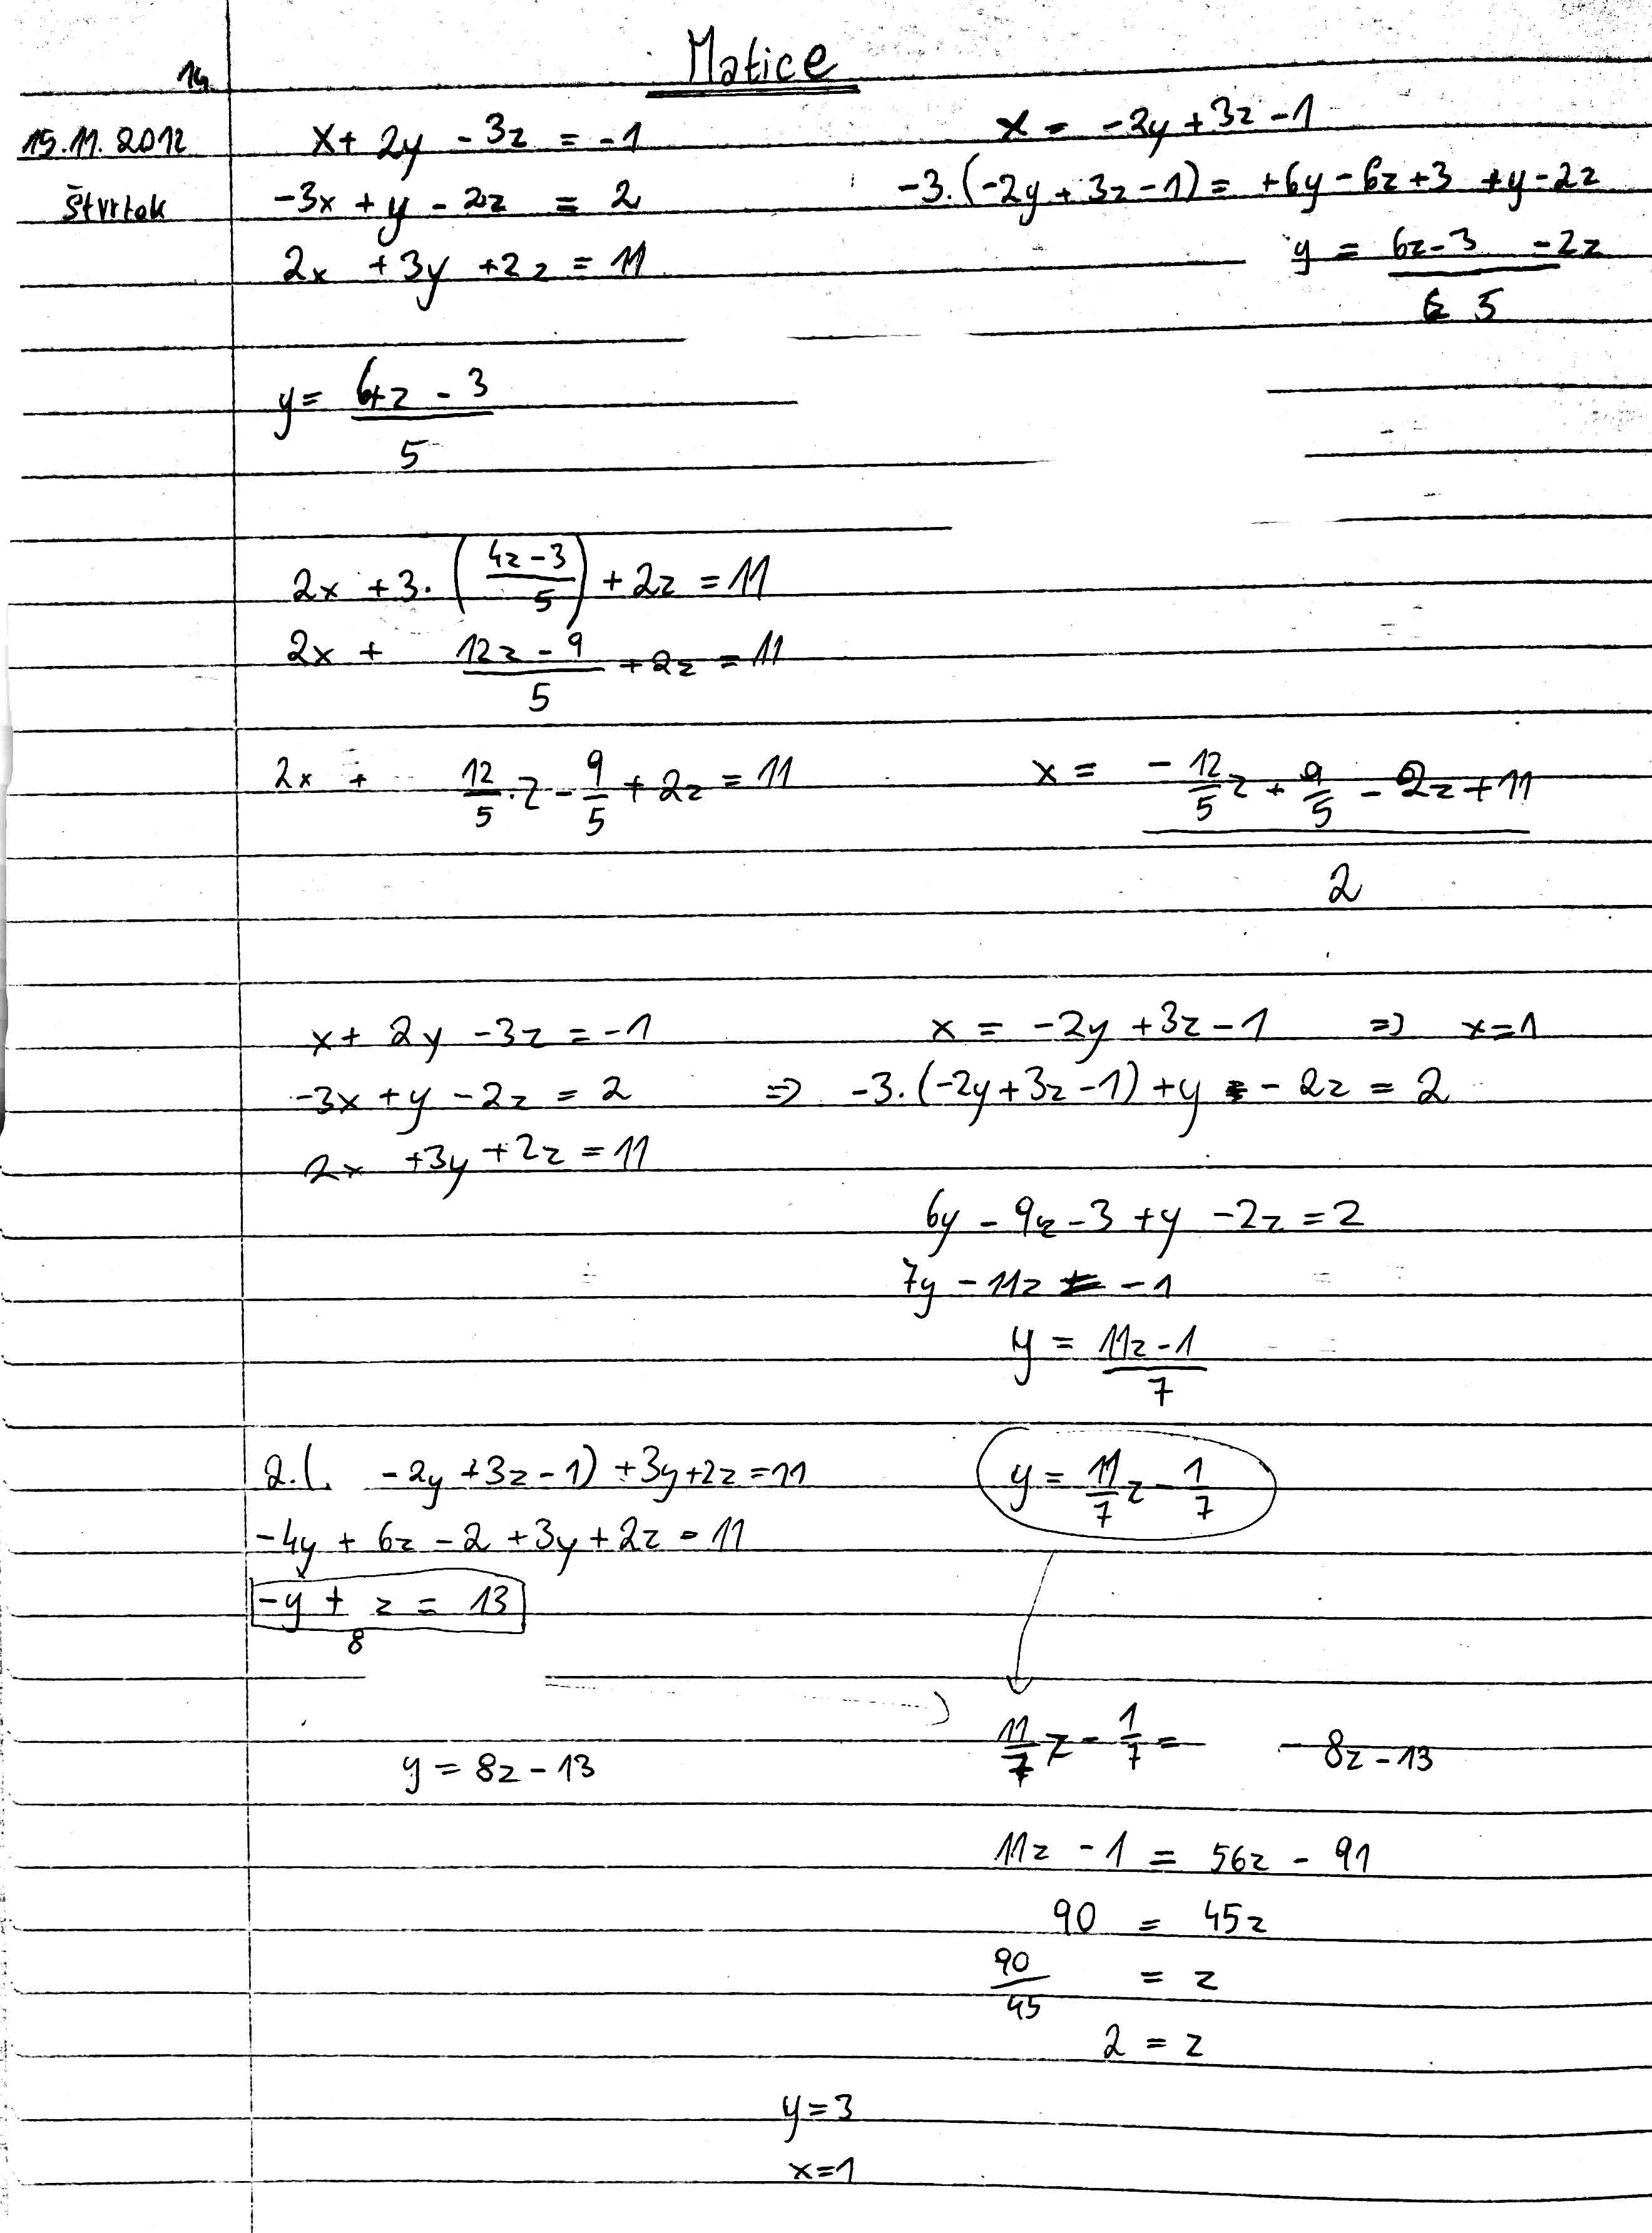 Matice
14.
15.11.2012
štvrtok
x + 2y - 3z = -1
x = -2y + 3z - 1
-3x + y - 2z = 2
-3.(-2y + 3z - 1) = +6y - 6z + 3 + y - 2z
2x + 3y + 2z = 11
y = (6z - 3 - 2z) / 5
y = (6+z - 3) / 5
2x + 3.((4z - 3) / 5) + 2z = 11
2x + (12z - 9) / 5 + 2z = 11
2x + 12/5.z - 9/5 + 2z = 11
x = (-12/5 z + 9/5 - 2z + 11) / 2
x + 2y - 3z = -1
x = -2y + 3z - 1 => x = 1
-3x + y - 2z = 2 => -3.(-2y + 3z - 1) + y - 2z = 2
2x + 3y + 2z = 11
6y - 9z - 3 + y - 2z = 2
7y - 11z = -1
y = (11z - 1) / 7
2.( -2y + 3z - 1) + 3y + 2z = 11
y = 11/7 z - 1/7
-4y + 6z - 2 + 3y + 2z = 11
-y + z = 13
8
11/7 z - 1/7 = 8z - 13
y = 8z - 13
11z - 1 = 56z - 91
90 = 45z
90/45 = z
2 = z
y = 3
x = 1